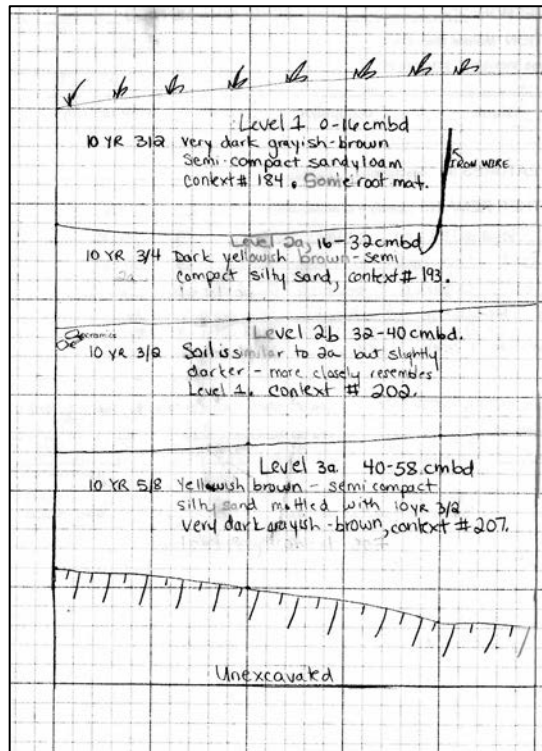 Level 1 0-16 cmbd
10 YR 3/2 very dark grayish-brown
semi-compact sandy loam
context # 184. Some root mat.
IRON WIRE
Level 2a, 16-32 cmbd
10 YR 3/4 Dark yellowish brown - semi
compact silty sand, context # 193.
2a
Level 2b 32-40 cmbd.
ceramics
10 YR 3/2 Soil is similar to 2a but slightly
darker - more closely resembles
Level 1. context # 202.
Level 3a 40-58 cmbd
10 YR 5/8 Yellowish brown - semi compact
silty sand mottled with 10 yr 3/2
very dark grayish-brown, context # 207.
Unexcavated